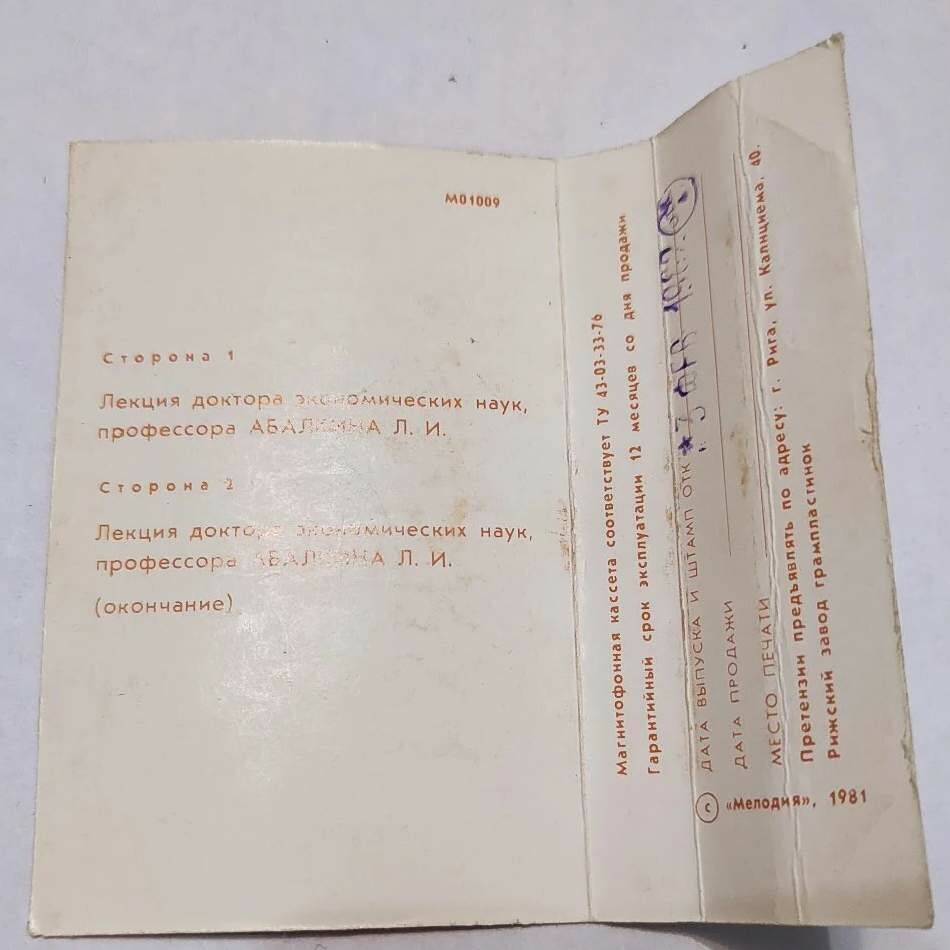 М01009
Сторона 1
Лекция доктора экономических наук,
профессора АБАЛКИНА Л. И.
Сторона 2
Лекция доктора экономических наук,
профессора АБАЛКИНА Л. И.
(окончание)
Магнитофонная кассета соответствует ТУ 43-03-33-76
Гарантийный срок эксплуатации 12 месяцев со дня продажи
ДАТА ВЫПУСКА И ШТАМП ОТК
ДАТА ПРОДАЖИ
МЕСТО ПЕЧАТИ
Претензии предъявлять по адресу: г. Рига, ул. Калнциема, 40.
Рижский завод грампластинок
© «Мелодия», 1981